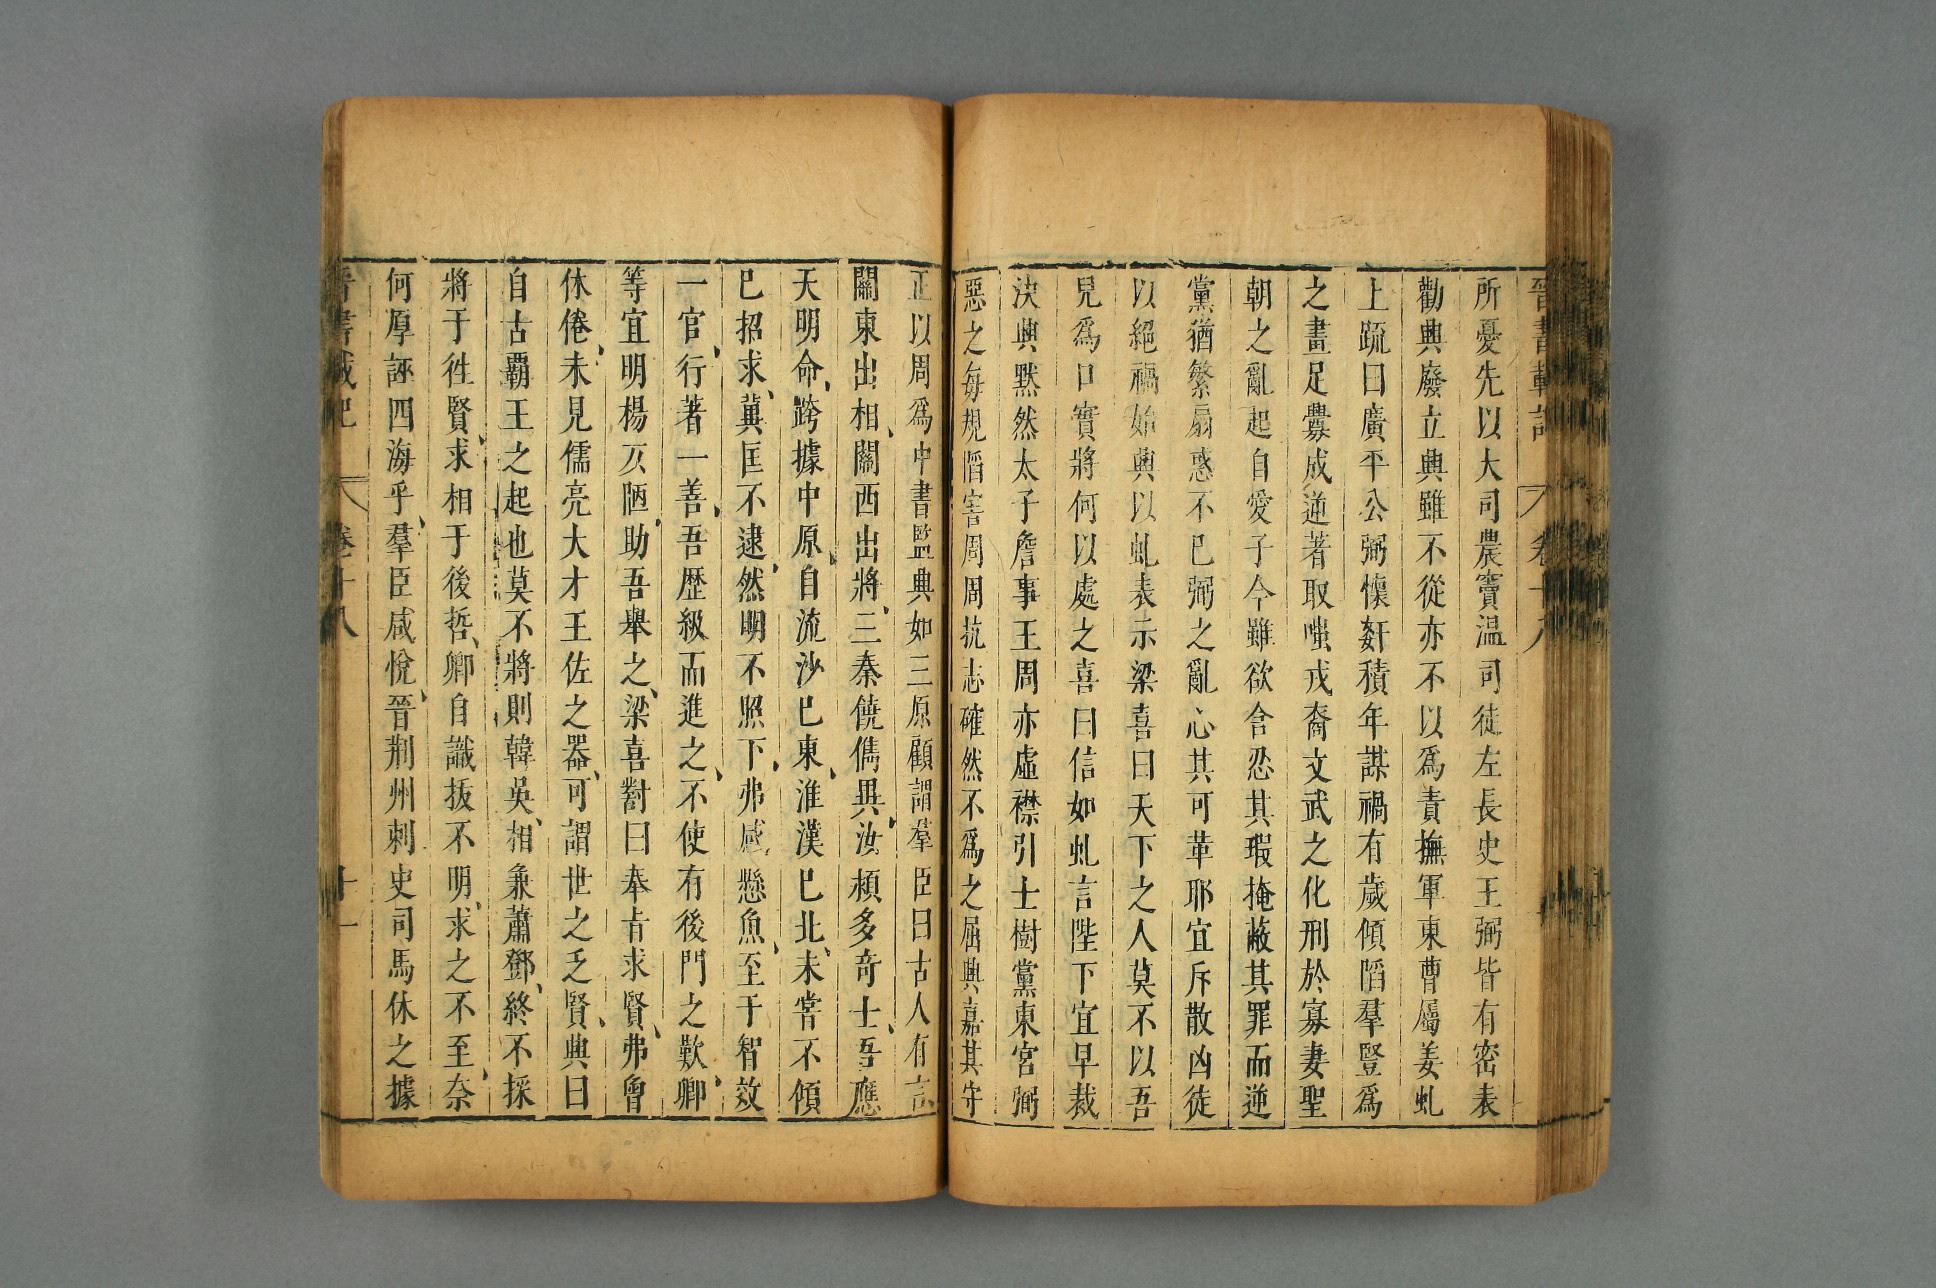 晉書載記 卷十八
所憂先以大司農竇温司徒左長史王弼皆有密表
勸興廢立興雖不從亦不以爲責撫軍東曹屬姜虬
上疏曰廣平公弼懷姧積年謀禍有歲傾陷羣豎爲
之畫足釁成逆著取嗤戎裔文武之化刑於寡妻聖
朝之亂起自愛子今雖欲含忍其瑕掩蔽其罪而逆
黨猶繁扇惑不已弼之亂心其可革耶宜斥散凶徒
以絕禍始興以虬表示梁喜曰天下之人莫不以吾
兒爲口實將何以處之喜曰信如虬言陛下宜早裁
決興默然太子詹事王周亦虛襟引士樹黨東宮弼
惡之每規陷害周周抗志確然不爲之屈興嘉其守
正以周爲中書監興如三原顧謂羣臣曰古人有言
關東出相關西出將三秦饒儁異汝潁多奇士吾應
天明命跨據中原自流沙已東淮漢已北未嘗不傾
已招求冀匡不逮然明不照下弗感懸魚至于智效
一官行著一善吾歷級而進之不使有後門之歎卿
等宜明揚仄陋助吾舉之梁喜對曰奉旨求賢弗曾
休倦未見儒亮大才王佐之器可謂世之乏賢興曰
自古霸王之起也莫不將則韓吳相兼蕭鄧終不採
將于徃賢求相于後哲卿自識拔不明求之不至奈
何厚誣四海乎羣臣咸悅晉荆州刺史司馬休之據
晉書載記 卷十八 十一